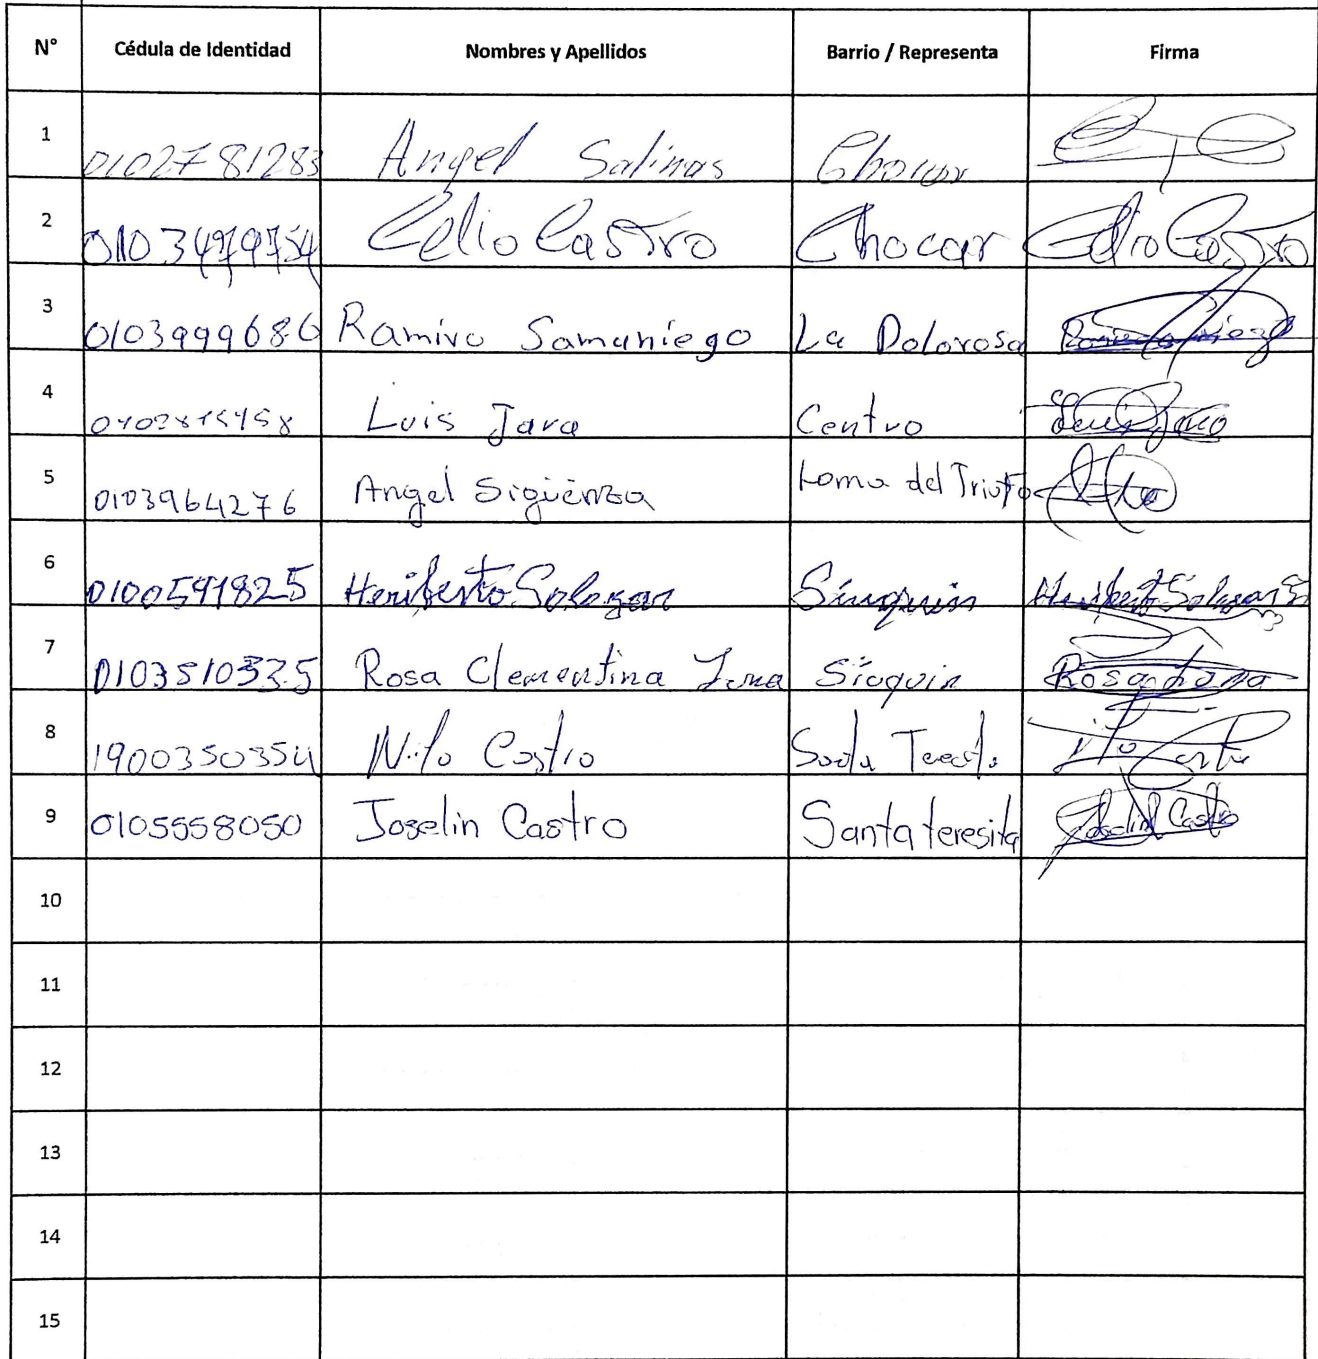 N° Cédula de Identidad Nombres y Apellidos Barrio / Representa Firma
1 0102781283 Angel Salinas Chocar
2 Celio Castro Chocar Celio Castro
3 0103999686 Ramiro Samaniego La Dolorosa
4 Luis Jara Centro Luis Jara
5 0103964276 Angel Sigüenza Loma del Triunfo
6 0100591825 Heriberto Solozar Sinquin Heriberto Solozar
7 0103510335 Rosa Clementina Sioquin Rosa
8 1900350354 Nilo Castro
9 0105558050 Joselin Castro Santa teresita Joselin Castro
10
11
12
13
14
15